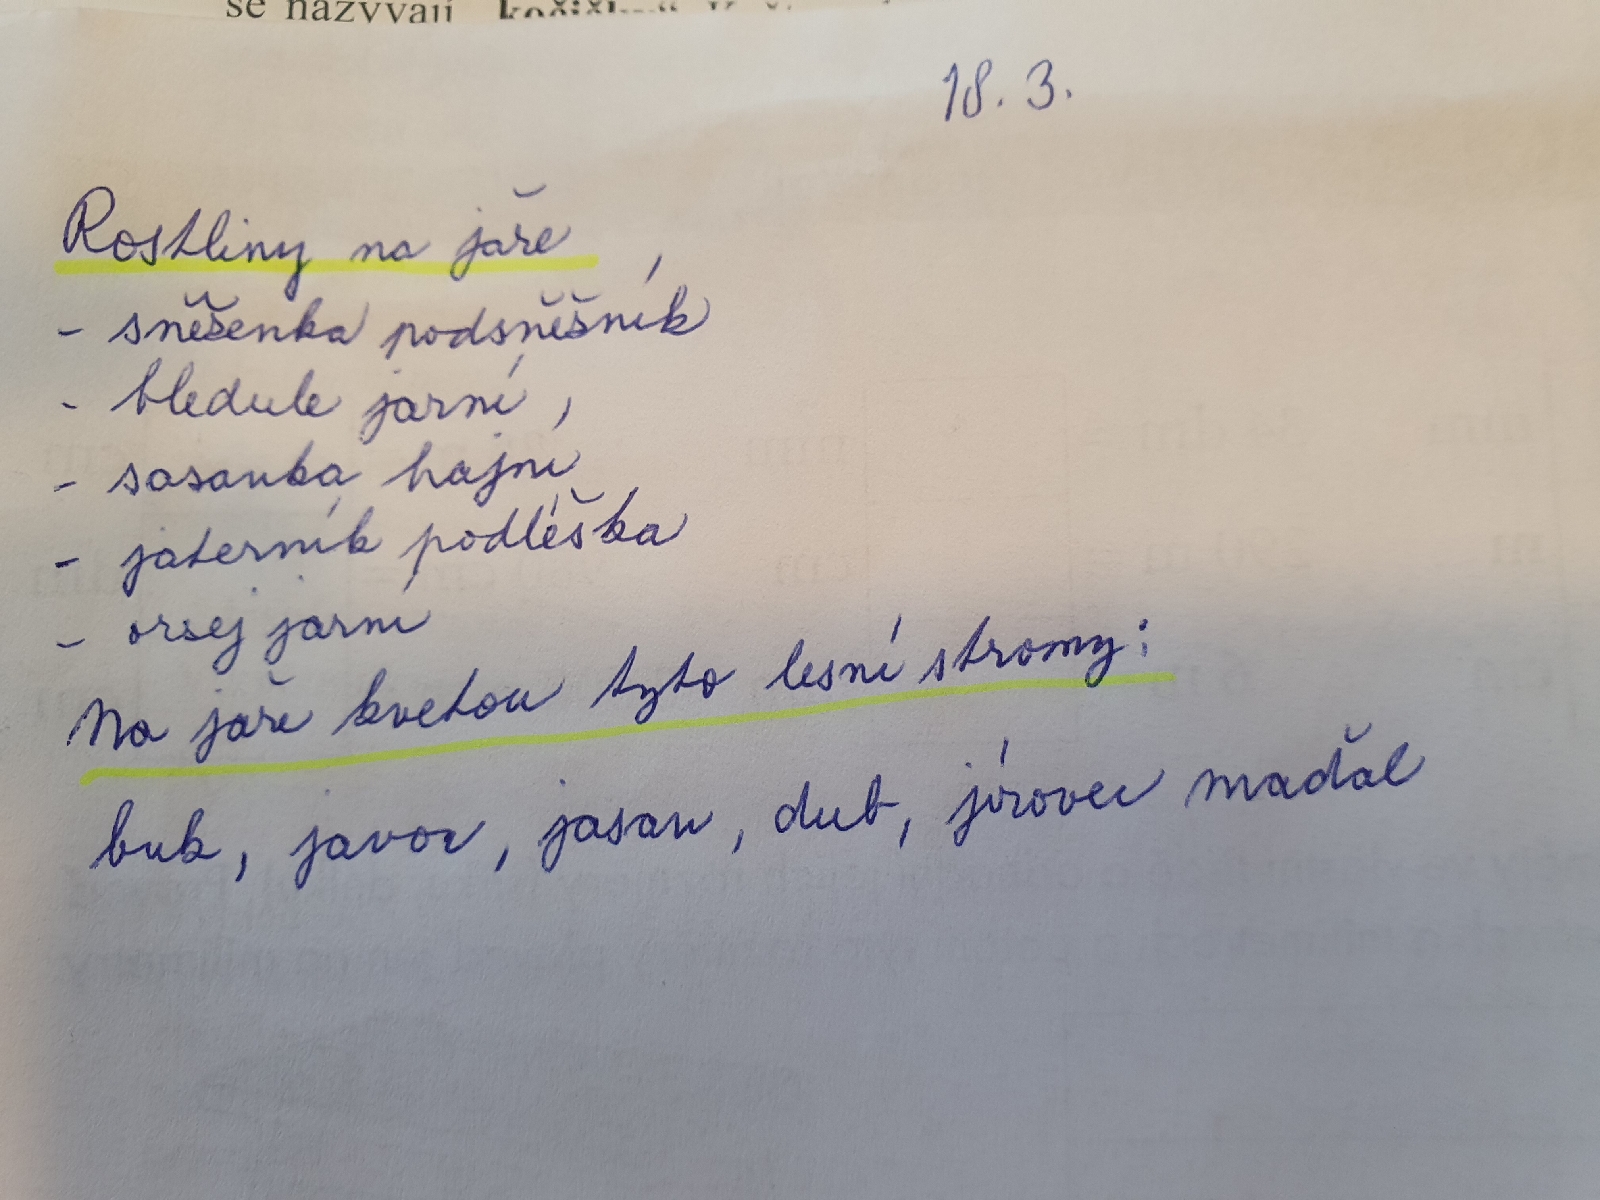 se nazývají
18. 3.
Rostliny na jaře
- sněženka podsněžník
- bledule jarní,
- sasanka hajní
- jaterník podléška
- orsej jarní
Na jaře kvetou tyto lesní stromy:
buk, javor, jasan, dub, jírovec maďal